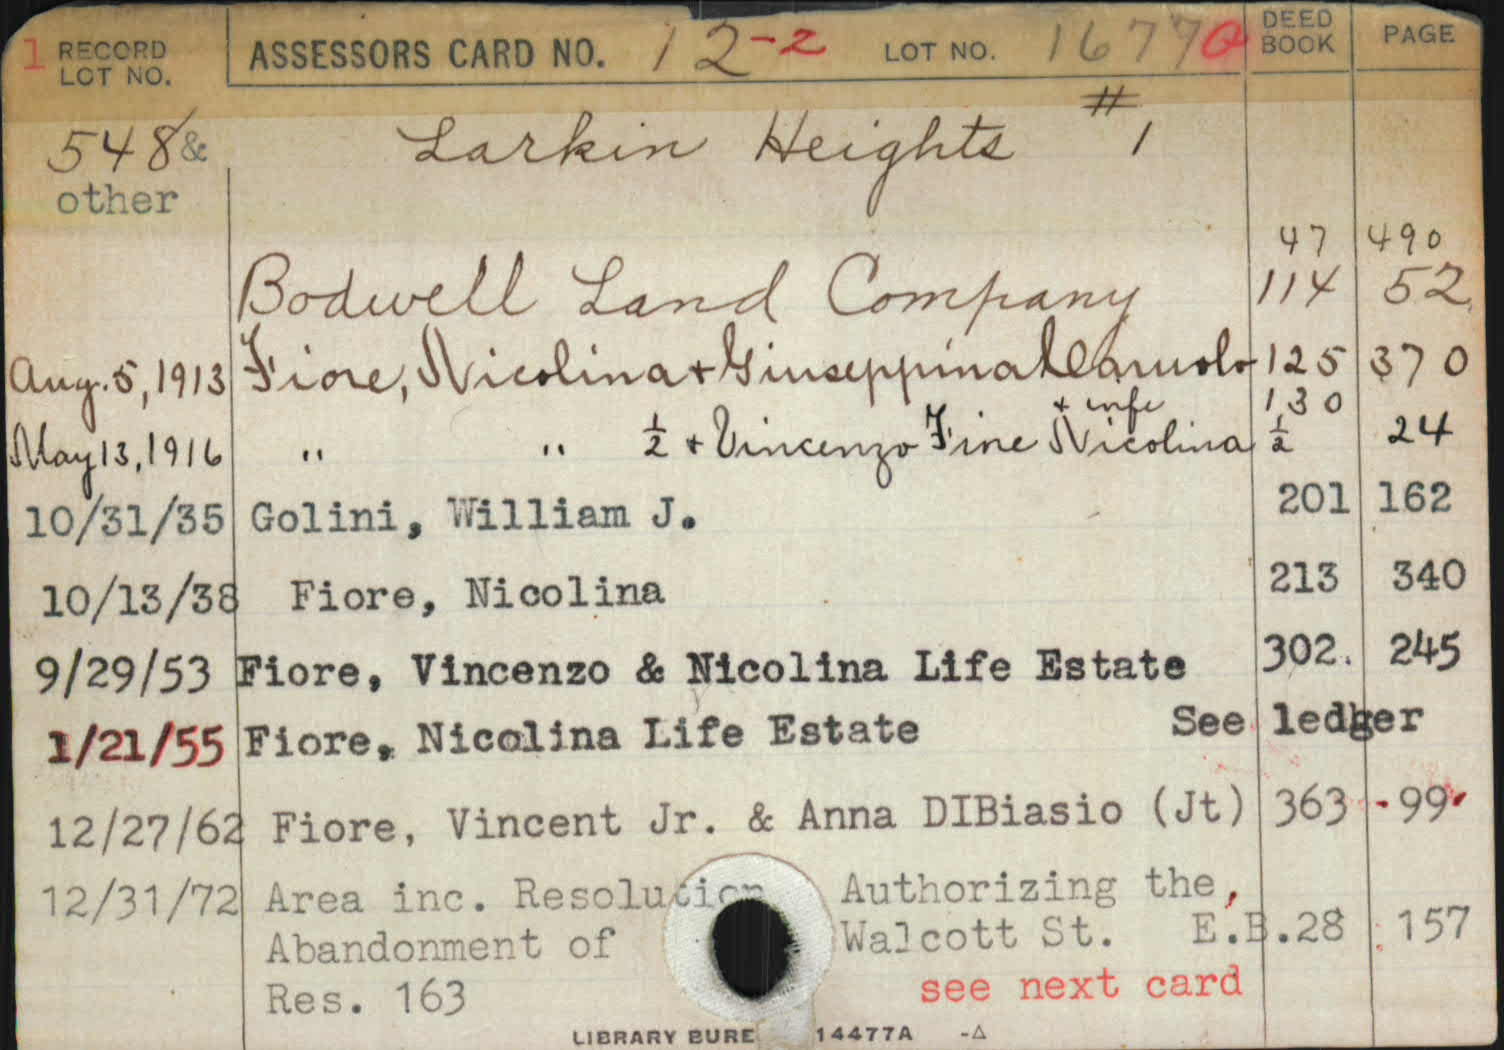 1 RECORD LOT NO. ASSESSORS CARD NO. 12-2 LOT NO. 1677 DEED BOOK PAGE
548 & other Larkin Heights #1
47 490
Bodwell Land Company 114 52
Aug. 5, 1913 Fiore, Nicolina + Giuseppina 125 370
+ wife 130
May 13, 1916 " " ½ + Vincenzo Fiore Nicolina ½ 24
10/31/35 Golini, William J. 201 162
10/13/38 Fiore, Nicolina 213 340
9/29/53 Fiore, Vincenzo & Nicolina Life Estate 302. 245
1/21/55 Fiore, Nicolina Life Estate See ledger
12/27/62 Fiore, Vincent Jr. & Anna DIBiasio (Jt) 363 99
12/31/72 Area inc. Resolution Authorizing the,
Abandonment of Walcott St. E.B.28 157
Res. 163 see next card
LIBRARY BURE 14477A -△